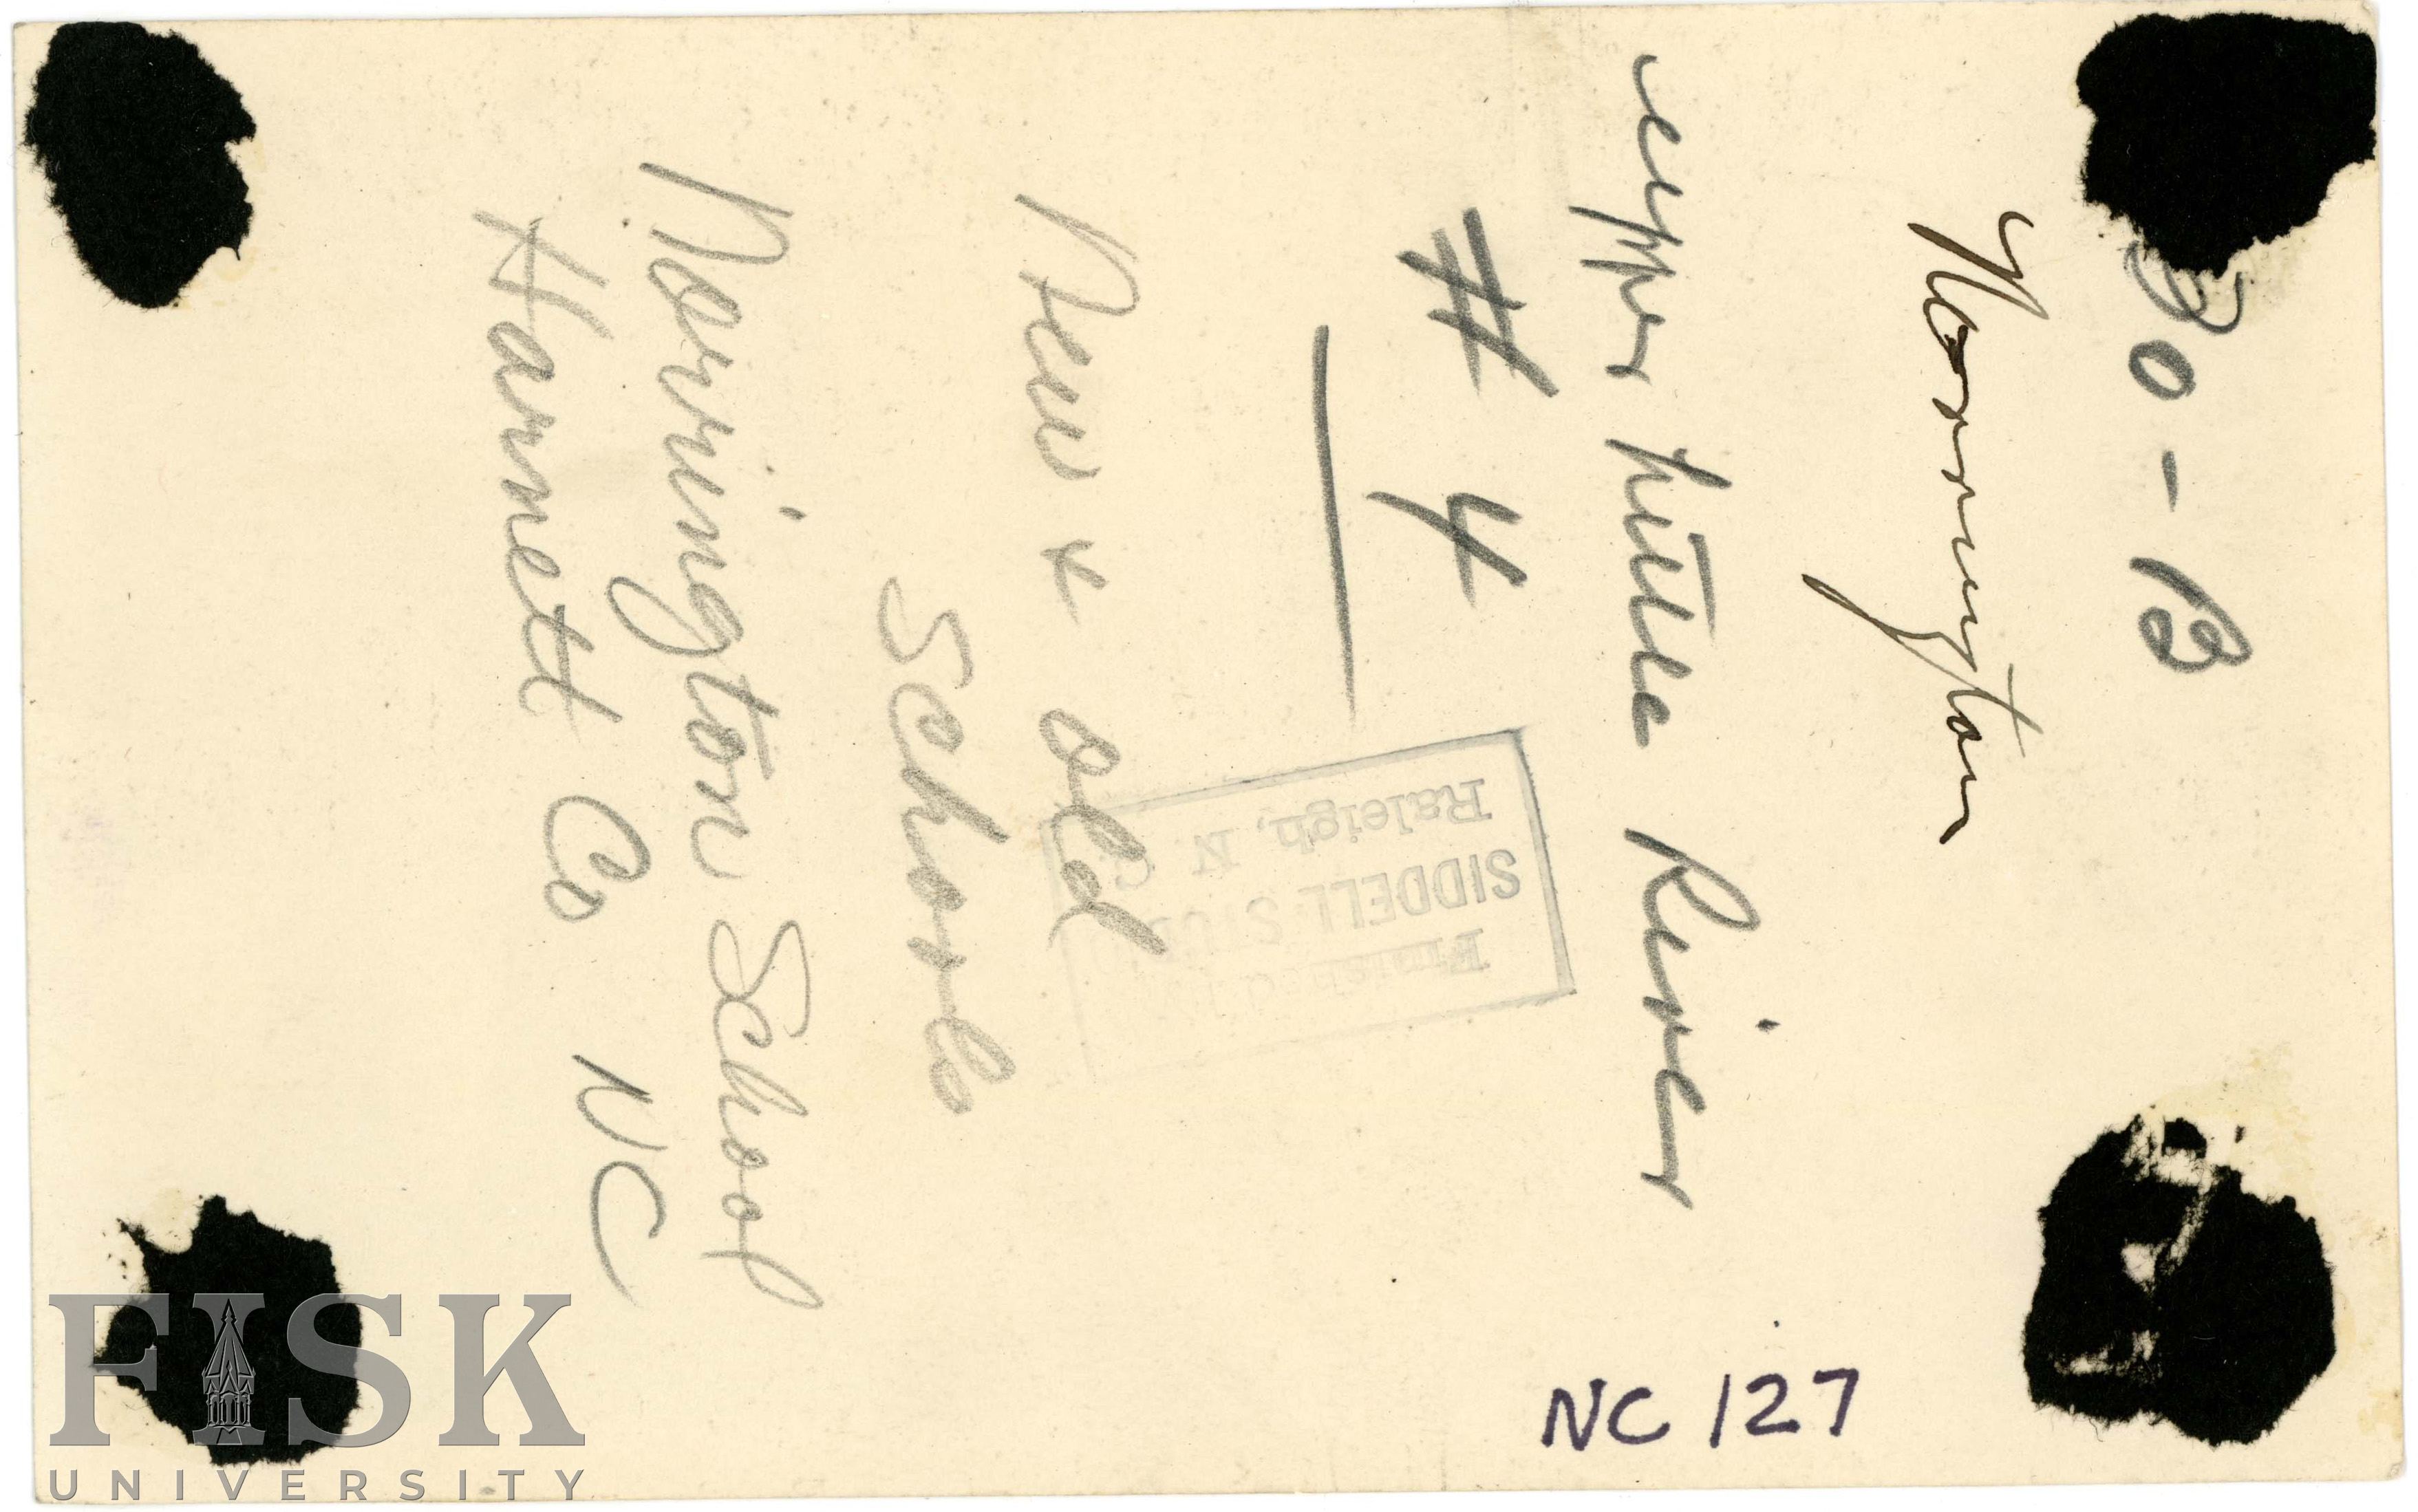 30-B
Norrington
upper Little River
# 4
New & old
Schools
Norrington School
Harnett Co NC
Finished by
SIDDELL STUDIO
Raleigh, N. C.
NC 127
FISK
UNIVERSITY